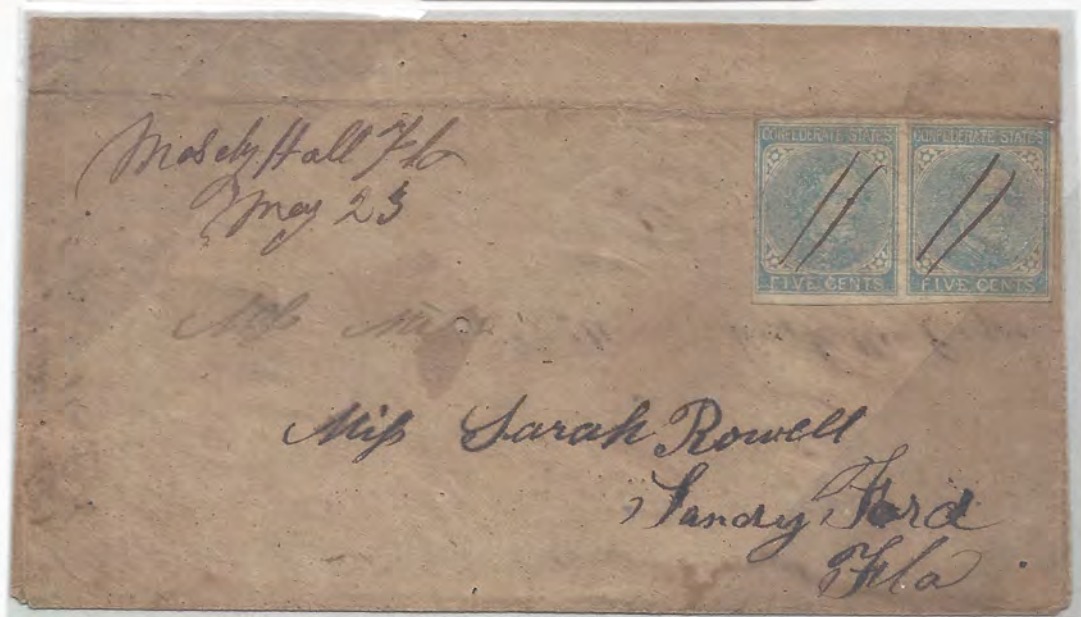 Mosely Hall Fla
May 23
CONFEDERATE STATES CONFEDERATE STATES
FIVE CENTS FIVE CENTS
Miss
Miss Sarah Rowell
Sandy Ford
Fla